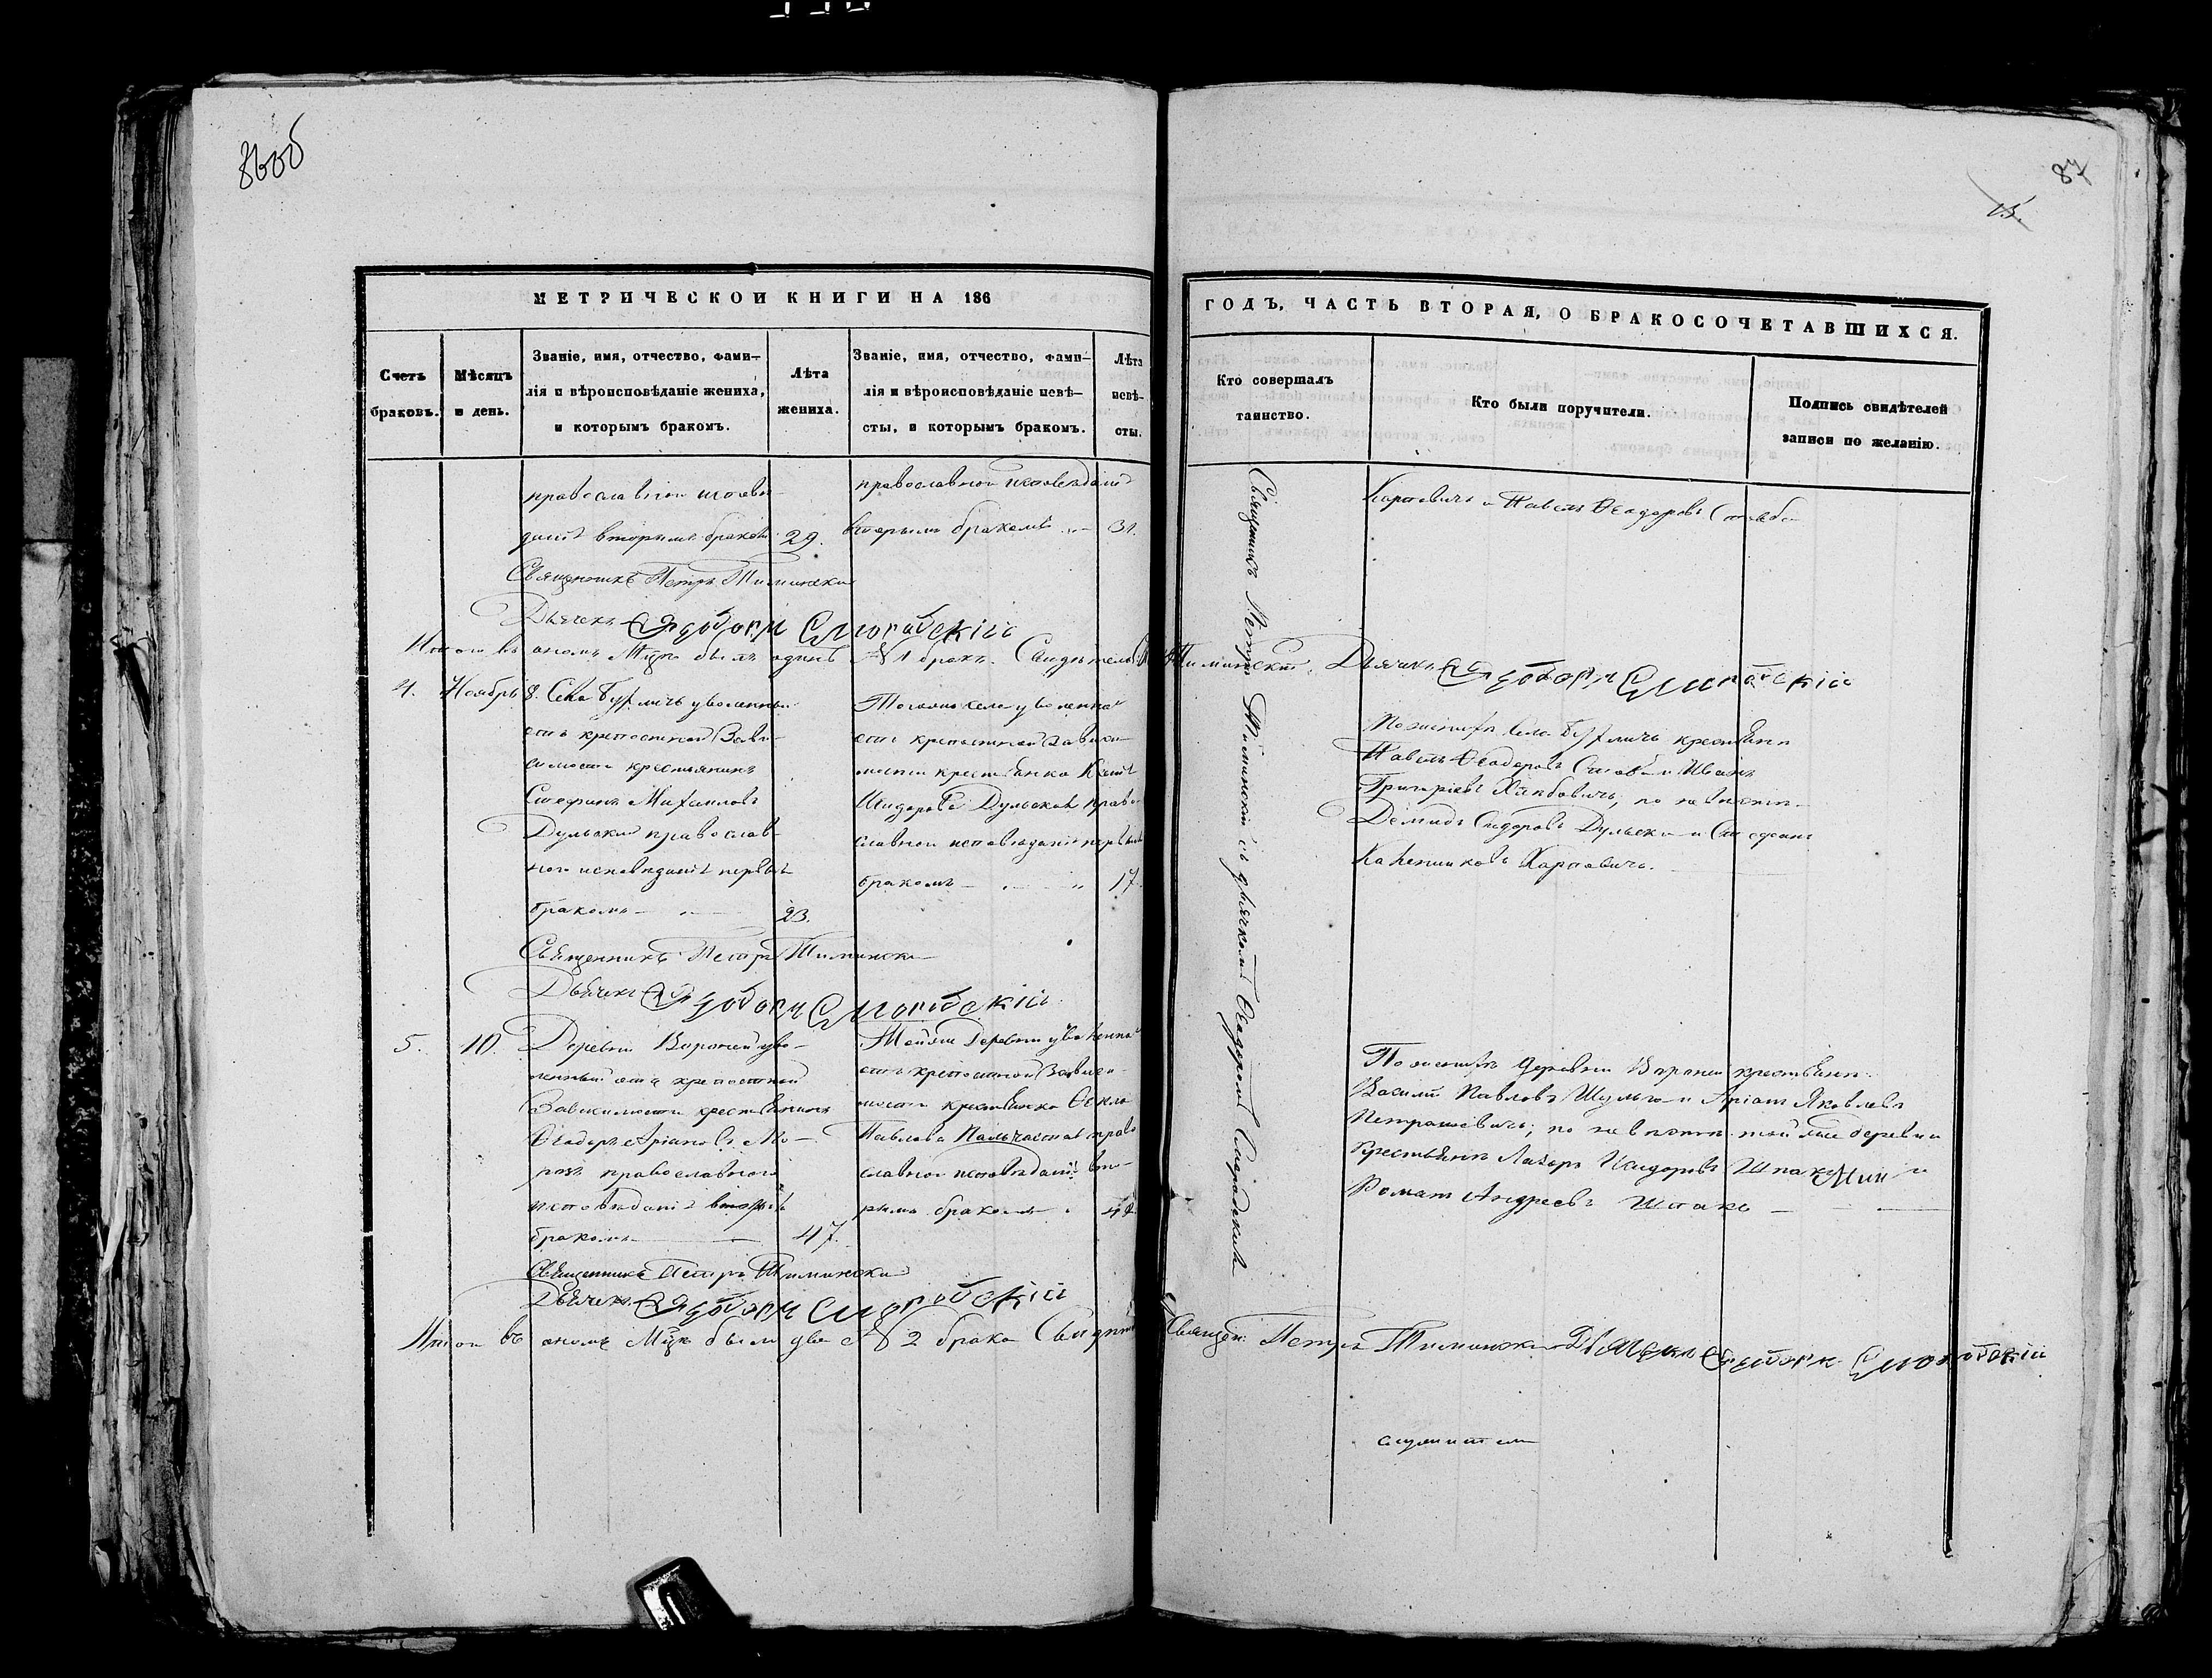 86об
87
15.
МЕТРИЧЕСКОЙ КНИГИ НА 186
ГОДЪ, ЧАСТЬ ВТОРАЯ, О БРАКОСОЧЕТАВШИХСЯ.
Счетъ браковъ.
Мѣсяцъ и день.
Званіе, имя, отчество, фами-
лія и вѣроисповѣданіе жениха,
и которымъ бракомъ.
Лѣта
жениха.
Званіе, имя, отчество, фами-
лія и вѣроисповѣданіе невѣ-
сты, и которымъ бракомъ.
Лѣта
невѣ-
сты.
Кто совершалъ
таинство.
Кто были поручители.
Подпись свидѣтелей
записи по желанію.
православнаго исповѣ-
данія вторымъ бракомъ 29.
православнаго исповѣданія
вторымъ бракомъ 31.
Карповичъ и Павелъ Ѳеодоровъ
Священникъ Петръ Тиминскій
Дьячекъ Ѳеодоръ Смородскій
Итого въ ономъ Мцѣ былъ одинъ № 1 бракъ. Свидѣтель
Тиминскій. Дьячекъ Ѳеодоръ Смородскій
4. Ноябрь 8. Села уволенный
отъ крепостной Зави-
симости крестьянинъ
Стефанъ Михаиловъ
Дульскій православ-
наго исповѣданія первымъ
бракомъ 23.
Тогоже села уволенная
отъ крепостной зависи-
мости крестьянка
Исидорова Дульская право-
славнаго исповѣданія первымъ
бракомъ 17
По женихѣ села крестьяне
Павелъ Ѳеодоровъ и Иванъ
Григоріевъ по невѣстѣ
Демидъ Сидоровъ Дульскій и Стефанъ
Карповичъ.
Священникъ Петръ Тиминскій
Дьячекъ Ѳеодоръ Смородскій
Священникъ Петръ Тиминскій съ дьячкомъ Ѳеодоромъ Смородскимъ
5. 10. Деревни Вороней уво-
ленный отъ крепостной
Зависимости крестьянинъ
Ѳеодоръ Аріановъ Мо-
розъ православнаго
исповѣданія вторымъ
бракомъ 47.
Тойже Деревни уволенная
отъ крепостной Зависи-
мости крестьянка Ѳекла
Павлова право-
славнаго исповѣданія вто-
рымъ бракомъ 42
По женихѣ деревни Вороней крестьяне
Василій Павловъ Шульга и Аріанъ Яковлевъ
Петрашевичъ; по невѣстѣ той же деревни
Крестьяне Лазарь Исидоровъ Шпакъ и
Романъ Андреевъ Шпакъ
Священникъ Петръ Тиминскій
Дьячекъ Ѳеодоръ Смородскій
Итого въ ономъ Мцѣ было два № 2 брака
Священ. Петръ Тиминскій Дьячекъ Ѳеодоръ Смородскій